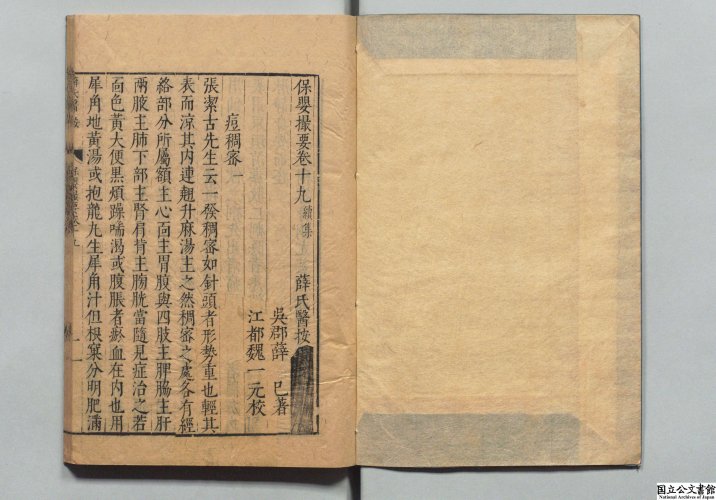 保嬰撮要卷十九續集 薛氏醫按
吳郡薛 已著
江都魏一元校
痘稠密一
張潔古先生云一發稠密如針頭者形勢重也輕其
表而涼其内連翹升麻湯主之然稠密之處各有經
絡部分所屬額主心面主胃腹與四肢主脾脇主肝
兩腋主肺下部主腎肩背主胸胱當隨見症治之若
面色黃大便黒煩躁喘渴或腹脹者瘀血在内也用
犀角地黃湯或抱龍丸生犀角汁但根窠分明肥滿
国立公文書館
National Archives of Japan